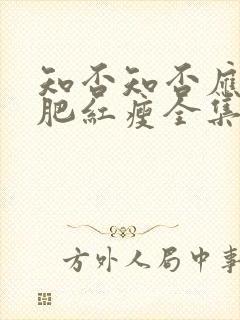 知否知否應
肥紅瘦全集
方外人局中事